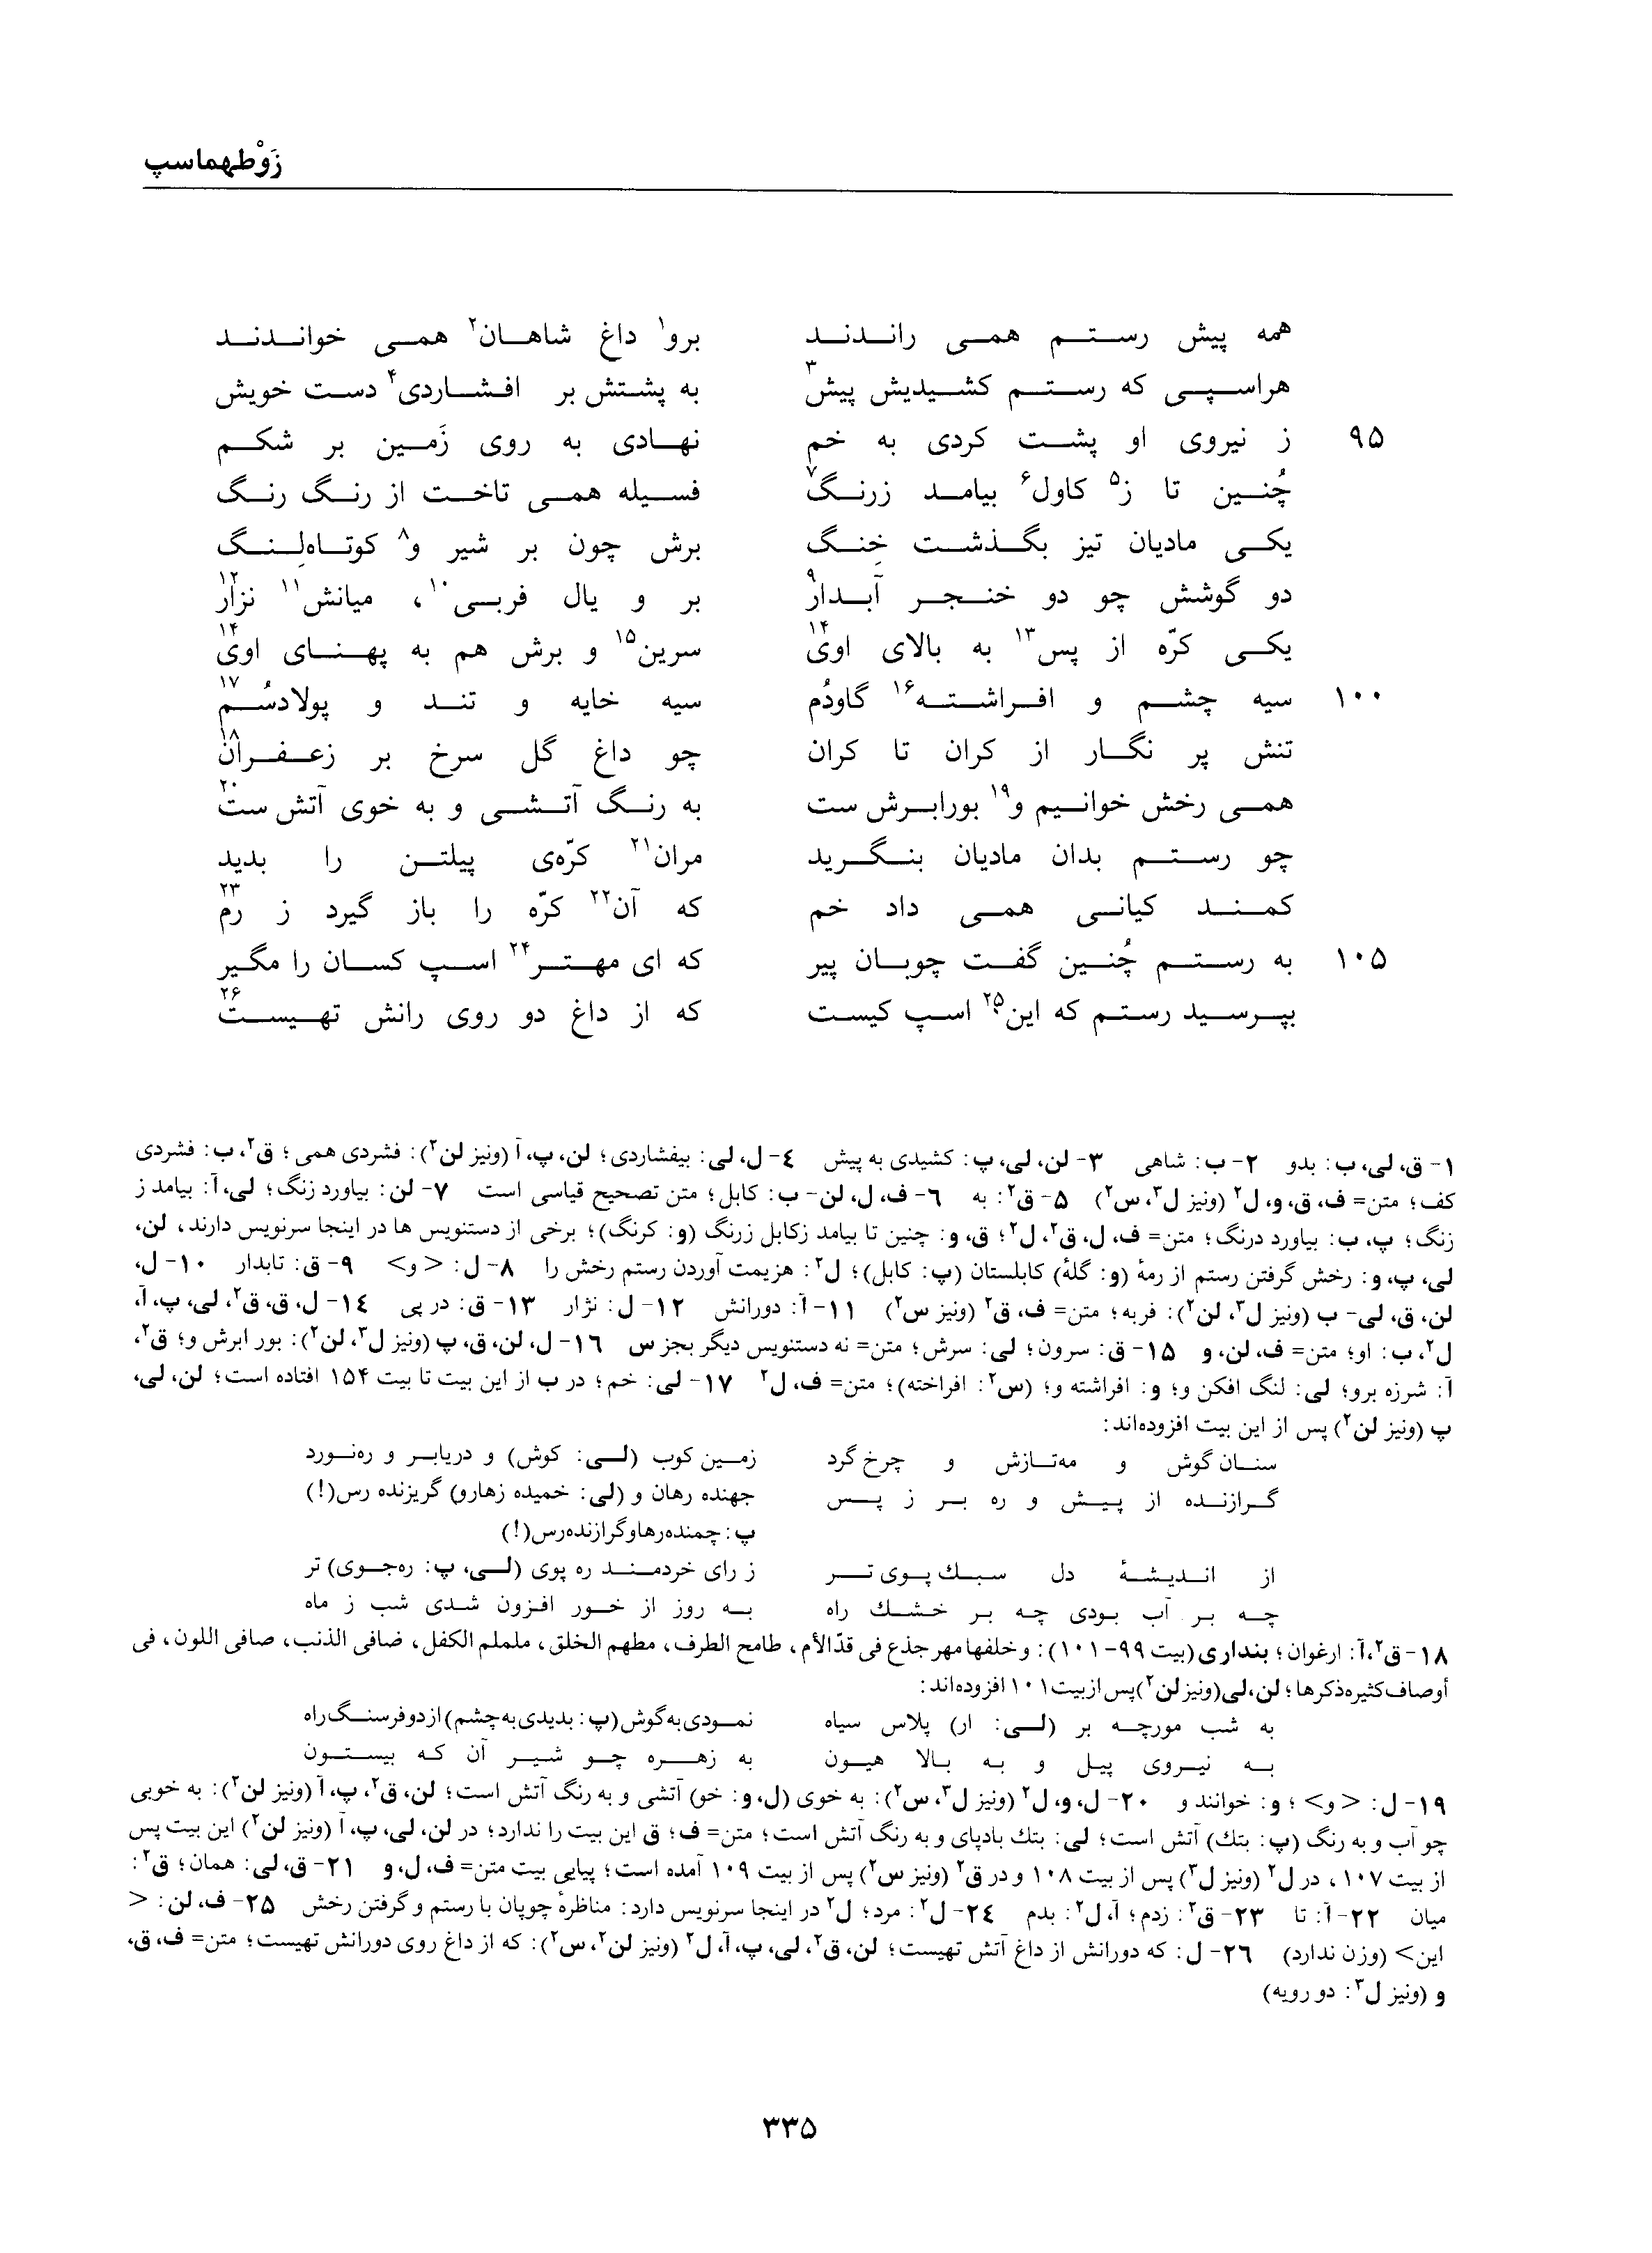 زَوْطهماسپ
همه پیش رستم همی راندند برو۱ داغ شاهان۲ همی خواندند
هراسپی که رستم کشیدیش پیش۳ به پشتش بر افشاردی۴ دست خویش
۹۵ ز نیروی او پشت کردی به خم نهادی به روی زَمین بر شکم
چُنین تا ز۵ کاول۶ بیامد زرنگ۷ فسیله همی تاخت از رنگ رنگ
یکی مادیان تیز بگذشت خِنگ برش چون بر شیر و۸ کوتاه‌لِنگ
دو گوشش چو دو خنجر آبدار۹ بر و یال فربی۱۰، میانش۱۱ نزار۱۲
یکی کرّه از پس۱۳ به بالای اوی۱۴ سرین۱۵ و برش هم به پهنای اوی۱۴
۱۰۰ سیه چشم و افراشته۱۶ گاودُم سیه خایه و تند و پولادسُم۱۷
تنش پر نگار از کران تا کران چو داغ گل سرخ بر زعفران۱۸
همی رخش خوانیم و۱۹ بورابرش ست به رنگ آتشی و به خوی آتش ست۲۰
چو رستم بدان مادیان بنگرید مران۲۱ کرّه‌ی پیلتن را بدید
کمند کیانی همی داد خم که آن۲۲ کرّه را باز گیرد ز رم۲۳
۱۰۵ به رستم چُنین گفت چوبان پیر که ای مهتر۲۴ اسپ کسان را مگیر
بپرسید رستم که این۲۵ اسپ کیست که از داغ دو روی رانش تهیست۲۶
۱- ق، لی، ب: بدو ۲- ب: شاهی ۳- لن، لی، پ: کشیدی به پیش ۴- ل، لی: بیفشاردی؛ لن، پ، آ (ونیز لن۲): فشردی همی؛ ق۲، ب: فشردی
کف؛ متن= ف، ق، و، ل۲ (ونیز ل۳، س۲) ۵- ق۲: به ۶- ف، ل، لن- ب: کابل؛ متن تصحیح قیاسی است ۷- لن: بیاورد زنگ؛ لی، آ: بیامد ز
زنگ؛ پ، ب: بیاورد درنگ؛ متن= ف، ل، ق۲، ل۲؛ ق، و: چنین تا بیامد زکابل زرنگ (و: کرنگ)؛ برخی از دستنویس ها در اینجا سرنویس دارند، لن،
لی، پ، و: رخش گرفتن رستم از رمهٔ (و: گلهٔ) کابلستان (پ: کابل)؛ ل۲: هزیمت آوردن رستم رخش را ۸- ل: <و> ۹- ق: تابدار ۱۰- ل،
لن، ق، لی- ب (ونیز ل۳، لن۲): فربه؛ متن= ف، ق۲ (ونیز س۲) ۱۱- آ: دورانش ۱۲- ل: نژار ۱۳- ق: در پی ۱۴- ل، ق، ق۲، لی، پ، آ،
ل۲، ب: او؛ متن= ف، لن، و ۱۵- ق: سرون؛ لی: سرش؛ متن= نه دستنویس دیگر بجز س ۱۶- ل، لن، ق، پ (ونیز ل۳، لن۲): بور ابرش و؛ ق۲،
آ: شرزه برو؛ لی: لنگ افکن و؛ و: افراشته و؛ (س۲: افراخته)؛ متن= ف، ل۲ ۱۷- لی: خم؛ در ب از این بیت تا بیت ۱۵۴ افتاده است؛ لن، لی،
پ (ونیز لن۲) پس از این بیت افزوده‌اند:
سنان گوش و مه‌تازش و چرخ گرد زمین کوب (لی: کوش) و دریابر و ره‌نورد
گرازنده از پیش و ره بر ز پس جهنده رهان و (لی: خمیده زهارو) گریزنده رس(!)
پ: چمنده‌رهاوگرازنده‌رس(!)
از اندیشهٔ دل سبك پوی تر ز رای خردمند ره پوی (لی، پ: ره‌جوی) تر
چه بر آب بودی چه بر خشك راه به روز از خور افزون شدی شب ز ماه
۱۸- ق۲، آ: ارغوان؛ بنداری (بیت ۹۹-۱۰۱): وخلفها مهر جذع فی قدّ الأم، طامح الطرف، مطهم الخلق، ململم الکفل، ضافی الذنب، صافی اللون، فی
أوصاف کثیره ذکرها؛ لن، لی (ونیز لن۲) پس از بیت ۱۰۱ افزوده‌اند:
به شب مورچه بر (لی: ار) پلاس سیاه نمودی به گوش (پ: بدیدی به چشم) از دو فرسنگ راه
به نیروی پیل و به بالا هیون به زهره چو شیر آن که بیستون
۱۹- ل: <و>؛ و: خوانند و ۲۰- ل، و، ل۲ (ونیز ل۳، س۲): به خوی (ل، و: خو) آتشی و به رنگ آتش است؛ لن، ق۲، پ، آ (ونیز لن۲): به خوبی
چو آب و به رنگ (پ: بتك) آتش است؛ لی: بتك بادپای و به رنگ آتش است؛ متن= ف؛ ق این بیت را ندارد؛ در لن، لی، پ، آ (ونیز لن۲) این بیت پس
از بیت ۱۰۷، در ل۲ (ونیز ل۳) پس از بیت ۱۰۸ و در ق۲ (ونیز س۲) پس از بیت ۱۰۹ آمده است؛ پیاپی بیت متن= ف، ل، و ۲۱- ق، لی: همان؛ ق۲:
میان ۲۲- آ: تا ۲۳- ق۲: زدم؛ آ، ل۲: بدم ۲۴- ل۲: مرد؛ ل۲ در اینجا سرنویس دارد: مناظرهٔ چوپان با رستم و گرفتن رخش ۲۵- ف، لن: <
این> (وزن ندارد) ۲۶- ل: که دورانش از داغ آتش تهیست؛ لن، ق۲، لی، پ، آ، ل۲ (ونیز لن۲، س۲): که از داغ روی دورانش تهیست؛ متن= ف، ق،
و (ونیز ل۳: دو رویه)
۳۳۵